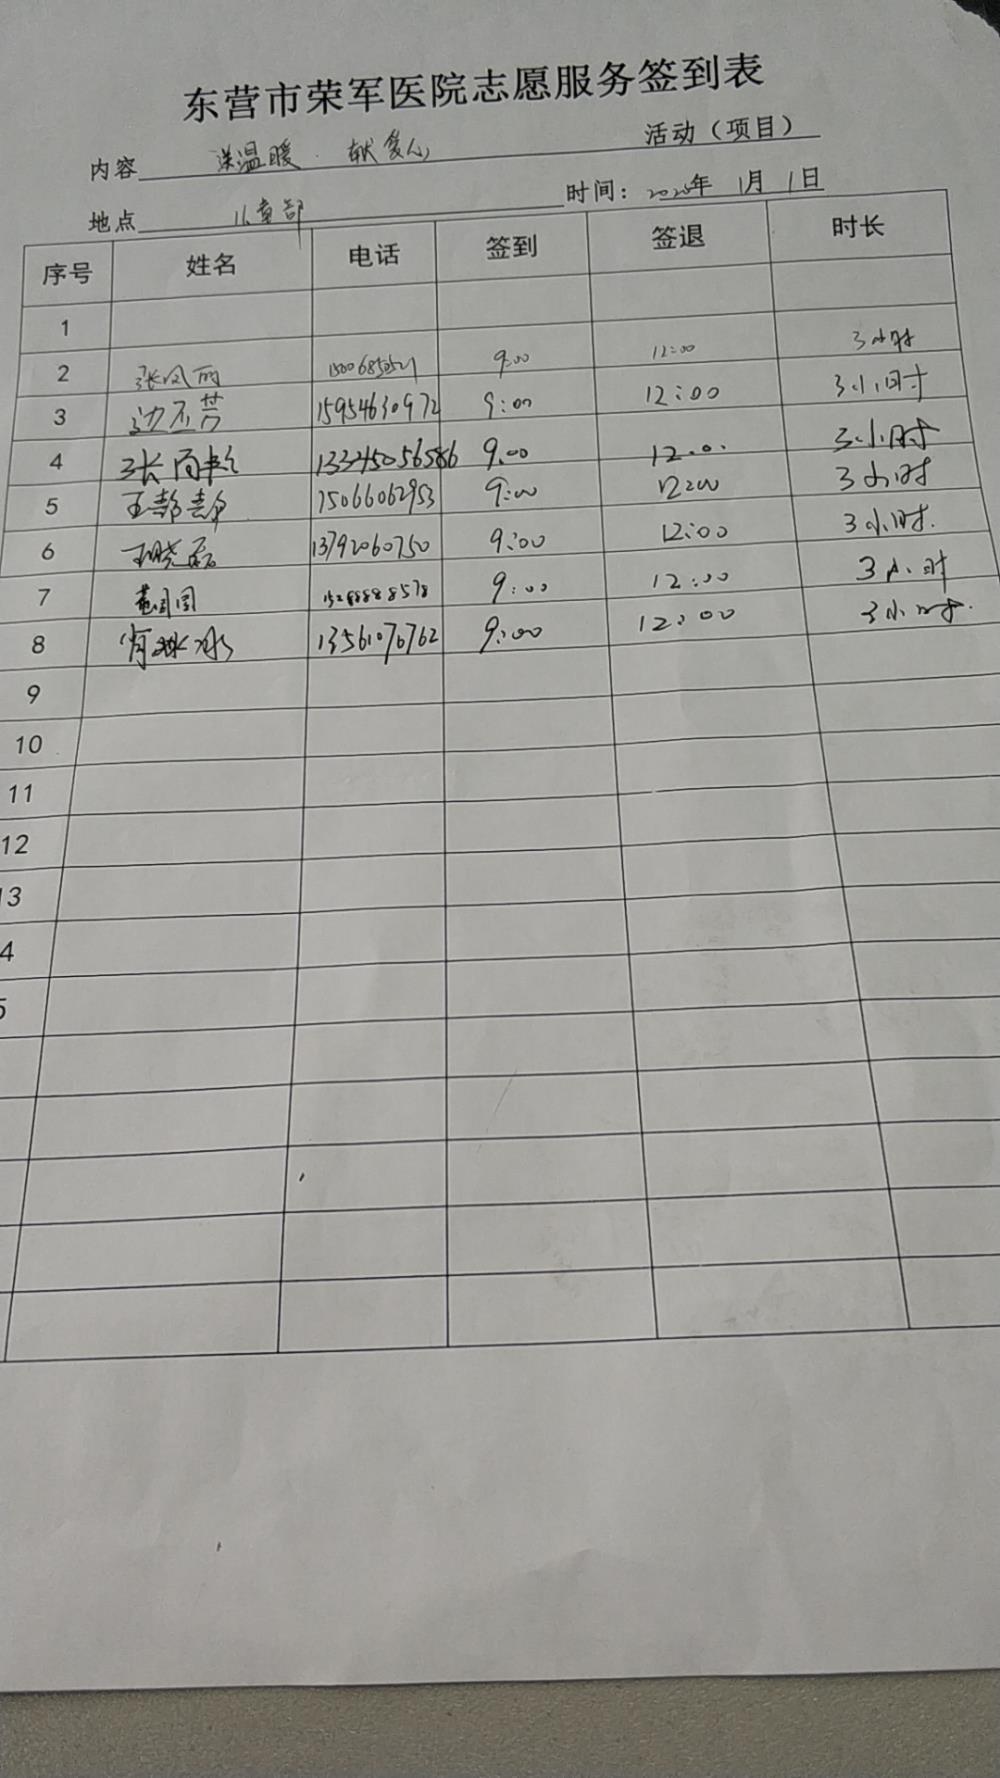 东营市荣军医院志愿服务签到表
内容 送温暖 献爱心 活动（项目）
地点 儿童部 时间：2020年 1月 1日
序号 姓名 电话 签到 签退 时长
1
2 张凤丽 9:00 12:00 3小时
3 15954630972 9:00 12:00 3小时
4 13345056586 9:00 12:0. 3小时
5 15066062953 9:00 12:00 3小时
6 王晓磊 13792060750 9:00 12:00 3小时
7 9:00 12:00 3小时
8 肖冰冰 13561070762 9:00 12:00 3小时.
9
10
11
12
13
4
5